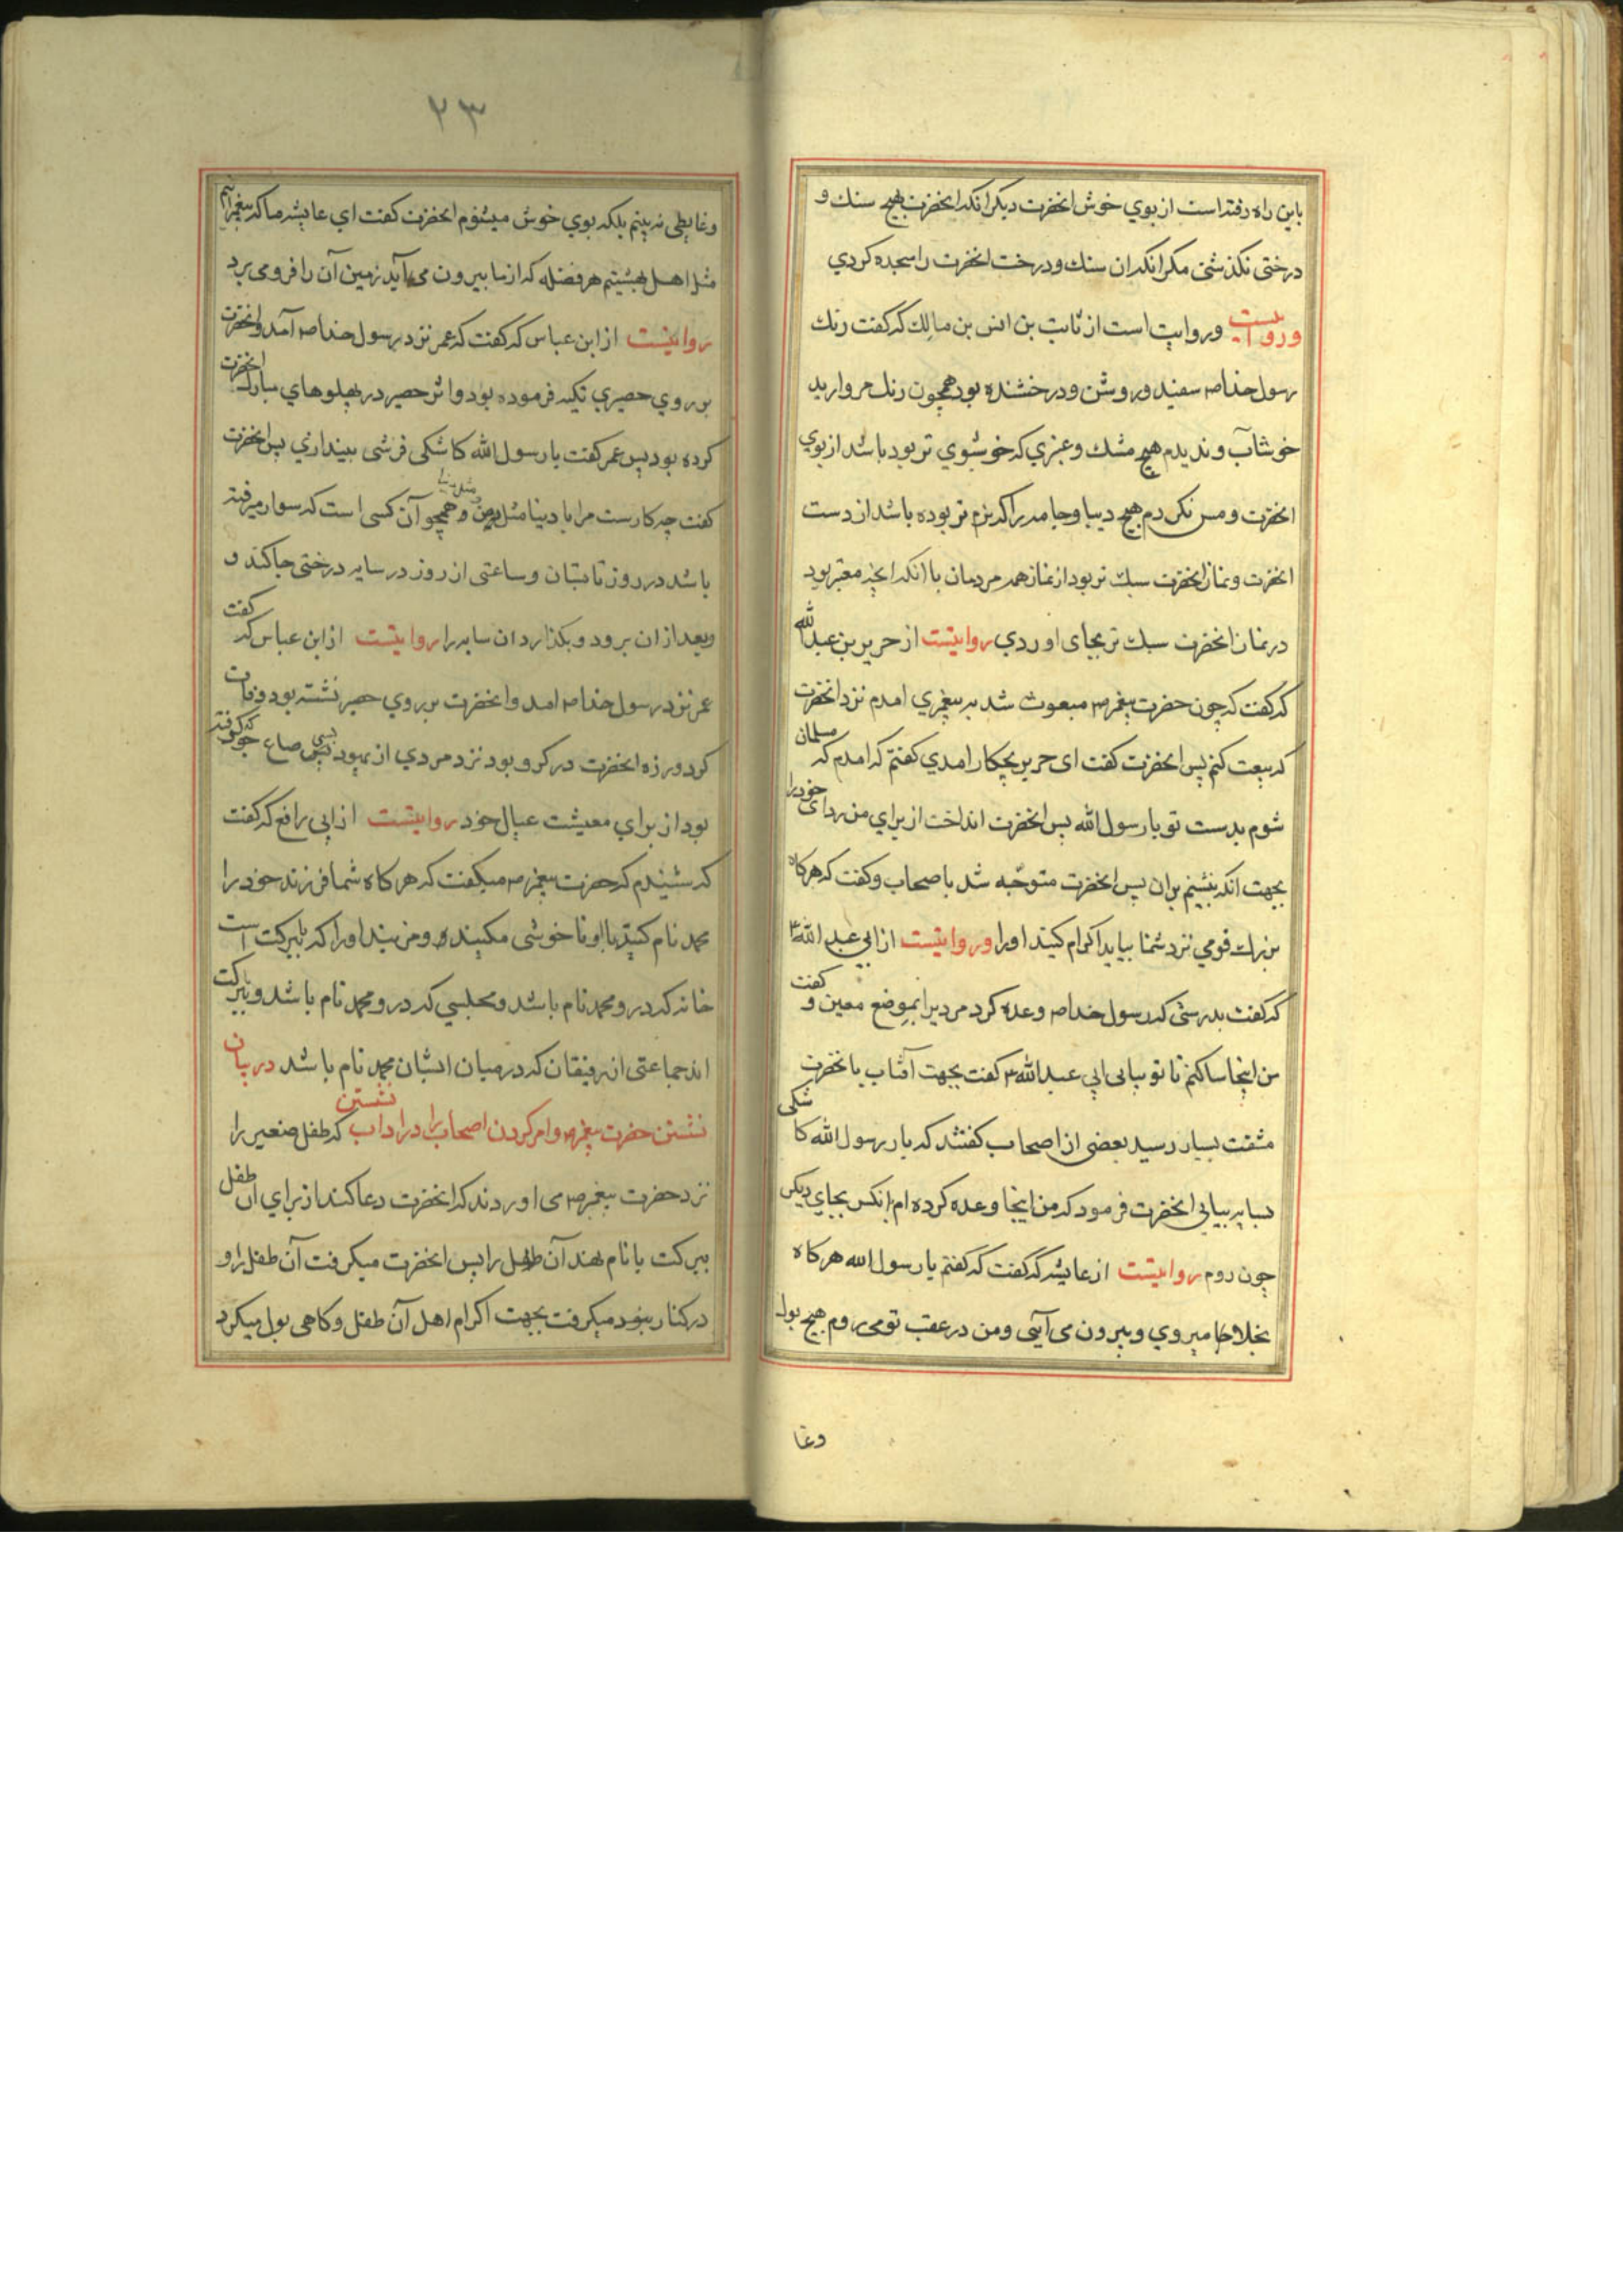 باین راه رفته است از بوی خوش انحضرت دیکر انکه انحضرت بهیچ سنك و
درختی نکذشتی مکر انکه ان سنك و درخت انحضرت را سجده کردی
وروایتست وروایت است از ثابت بن انس بن مالك که گفت رنك
رسول خدا صم سفید و روشن و درخشنده بود همچون رنك مروارید
خوشاب و ندیدم هیچ مشك و عنبری که خوشبوی تر بود باشد از بوی
انحضرت و مس نکردم هیچ دیبا و جامه را که نرم تر بوده باشد از دست
انحضرت و نماز انحضرت سبك تر بود از نماز همه مردمان با انکه انچه معتبر بود
در نماز انحضرت سبك تر بجای اوردی روایتست از جریر بن عبد الله
که گفت که چون حضرت پیغمبر صم مبعوث شد به پیغمبری امدم نزد انحضرت
که بیعت کنم پس انحضرت کفت ای جریر بچکار امدی کفتم که امدم که مسلمان
شوم بدست تو یا رسول الله پس انحضرت انداخت از برای من ردای خود را
بجهت انکه بنشینم بران پس انحضرت متوجّه شد باصحاب و کفت که هر کاه
بزرك قومی نزد شما بیاید اکرام کنید او را وروایتست از ابی عبد الله ع
که کفت بدرستی که رسول خدا صم وعده کرد مردیرا بموضع معین و کفت
من اینجا ساکنم تا تو بیایی ابی عبد الله ع کفت بجهت آفتاب بانحضرت
مشقت بسیار رسید بعضی از اصحاب کفتند که یا رسول الله کاشکی
بسایه بیایی انحضرت فرمود که من اینجا وعده کرده ام بانکس بجای دیکر
چون روم روایتست از عایشه که کفت که کفتم یا رسول الله هر کاه
بخلاجا میروی و بیرون می آیی و من در عقب تو می روم هیچ بول
وغا
۲۳
وغایطی نه بینم بلکه بوی خوش میشنوم انحضرت کفت ای عایشه ما که پیغمبرانیم
مثل اهل بهشتیم هر فضله که از ما بیرون می آید زمین آن را فرو می برد
روایتست از ابن عباس که کفت که عمر نزد رسول خدا صم آمد و انحضرت
بر روی حصیری تکیه فرموده بود و اثر حصیر در پهلوهای مبارك انحضرت
کرده بود پس عمر کفت یا رسول الله کاشکی فرشی بینداری پس انحضرت
کفت چه کارست مرا با دینا مثل من و مثل دنیا همچو آن کسی است که سوار میرفته
باشد در روز تابستان و ساعتی از روز در سایه درختی جا کند و
وبعد از ان برود و بکذارد ان سایه را روایتست از ابن عباس که کفت
عمر نزد رسول خدا صم امد و انحضرت بر روی حصیر نشسته بود وفات
کرد و زره انحضرت در کرو بود نزد مردی از یهود بسی صاع جو که کرفته
بود از برای معیشت عیال خود روایتست از ابی رافع که کفت
که شنیدم که حضرت پیغمبر صم میکفت که هر کاه شما فرزند خود را
محمد نام کنید با او ناخوشی مکنید و مزنید او را که بابرکت است
خانه که درو محمد نام باشد و مجلسی که درو محمد نام باشد و بابرکت
اند جماعتی از رفیقان که در میان ایشان محمد نام باشد در بیان
نشستن حضرت پیغمبر صم و امر کردن اصحاب را در اداب نشستن که طفل صغیر را
نزد حضرت پیغمبر صم می اوردند که انحضرت دعا کند از برای ان طفل
ببرکت یا نام نهند آن طفل را پس انحضرت میکرفت آن طفل را و
در کنار بنود میکرفت بجهت اکرام اهل آن طفل و کاهی بول میکرد